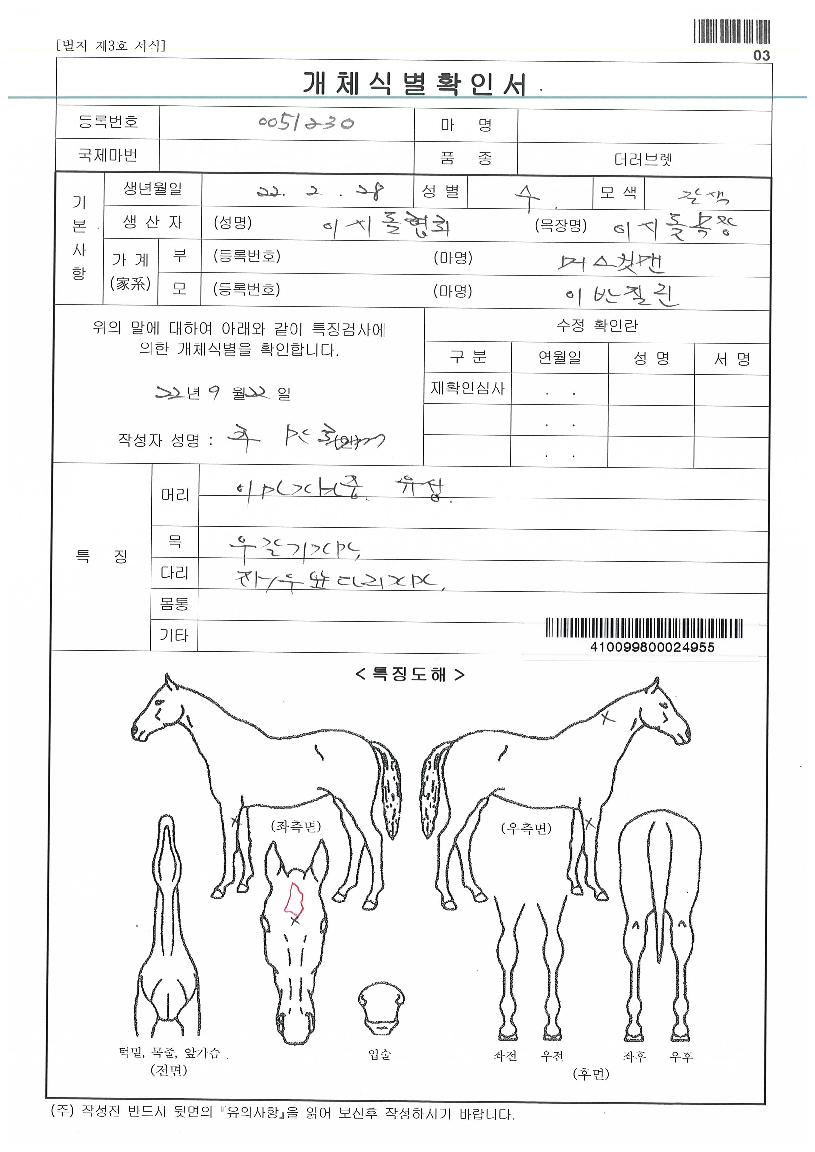 [별지 제3호 서식]
03
개체식별확인서
등록번호 0051230 마 명
국제마번 품 종 더러브렛
기본사항
생년월일 22. 2. 28 성 별 수 모 색 갈색
생 산 자 (성명) 이시돌협회 (목장명) 이시돌목장
가 계 (家系) 부 (등록번호) (마명) 머스킷맨
모 (등록번호) (마명) 이반질린
위의 말에 대하여 아래와 같이 특징검사에
의한 개체식별을 확인합니다.
22년 9 월 22 일
작성자 성명 :
수정 확인란
구 분 연월일 성 명 서 명
재확인심사 . .
. .
. .
특 징
머리 유성
목
다리 좌/우앞다리
몸통
기타
410099800024955
<특징도해>
(좌측면) (우측면)
턱밑, 목줄, 앞가슴
(전면)
입술
좌전 우전 좌후 우후
(후면)
(주) 작성전 반드시 뒷면의 『유의사항』을 읽어 보신후 작성하시기 바랍니다.